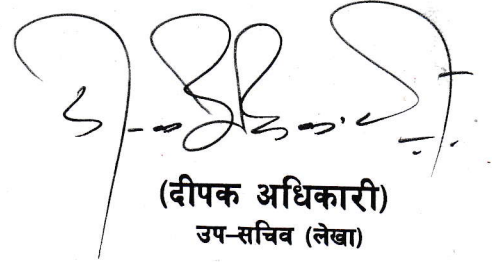 (दीपक अधिकारी)
उप-सचिव (लेखा)